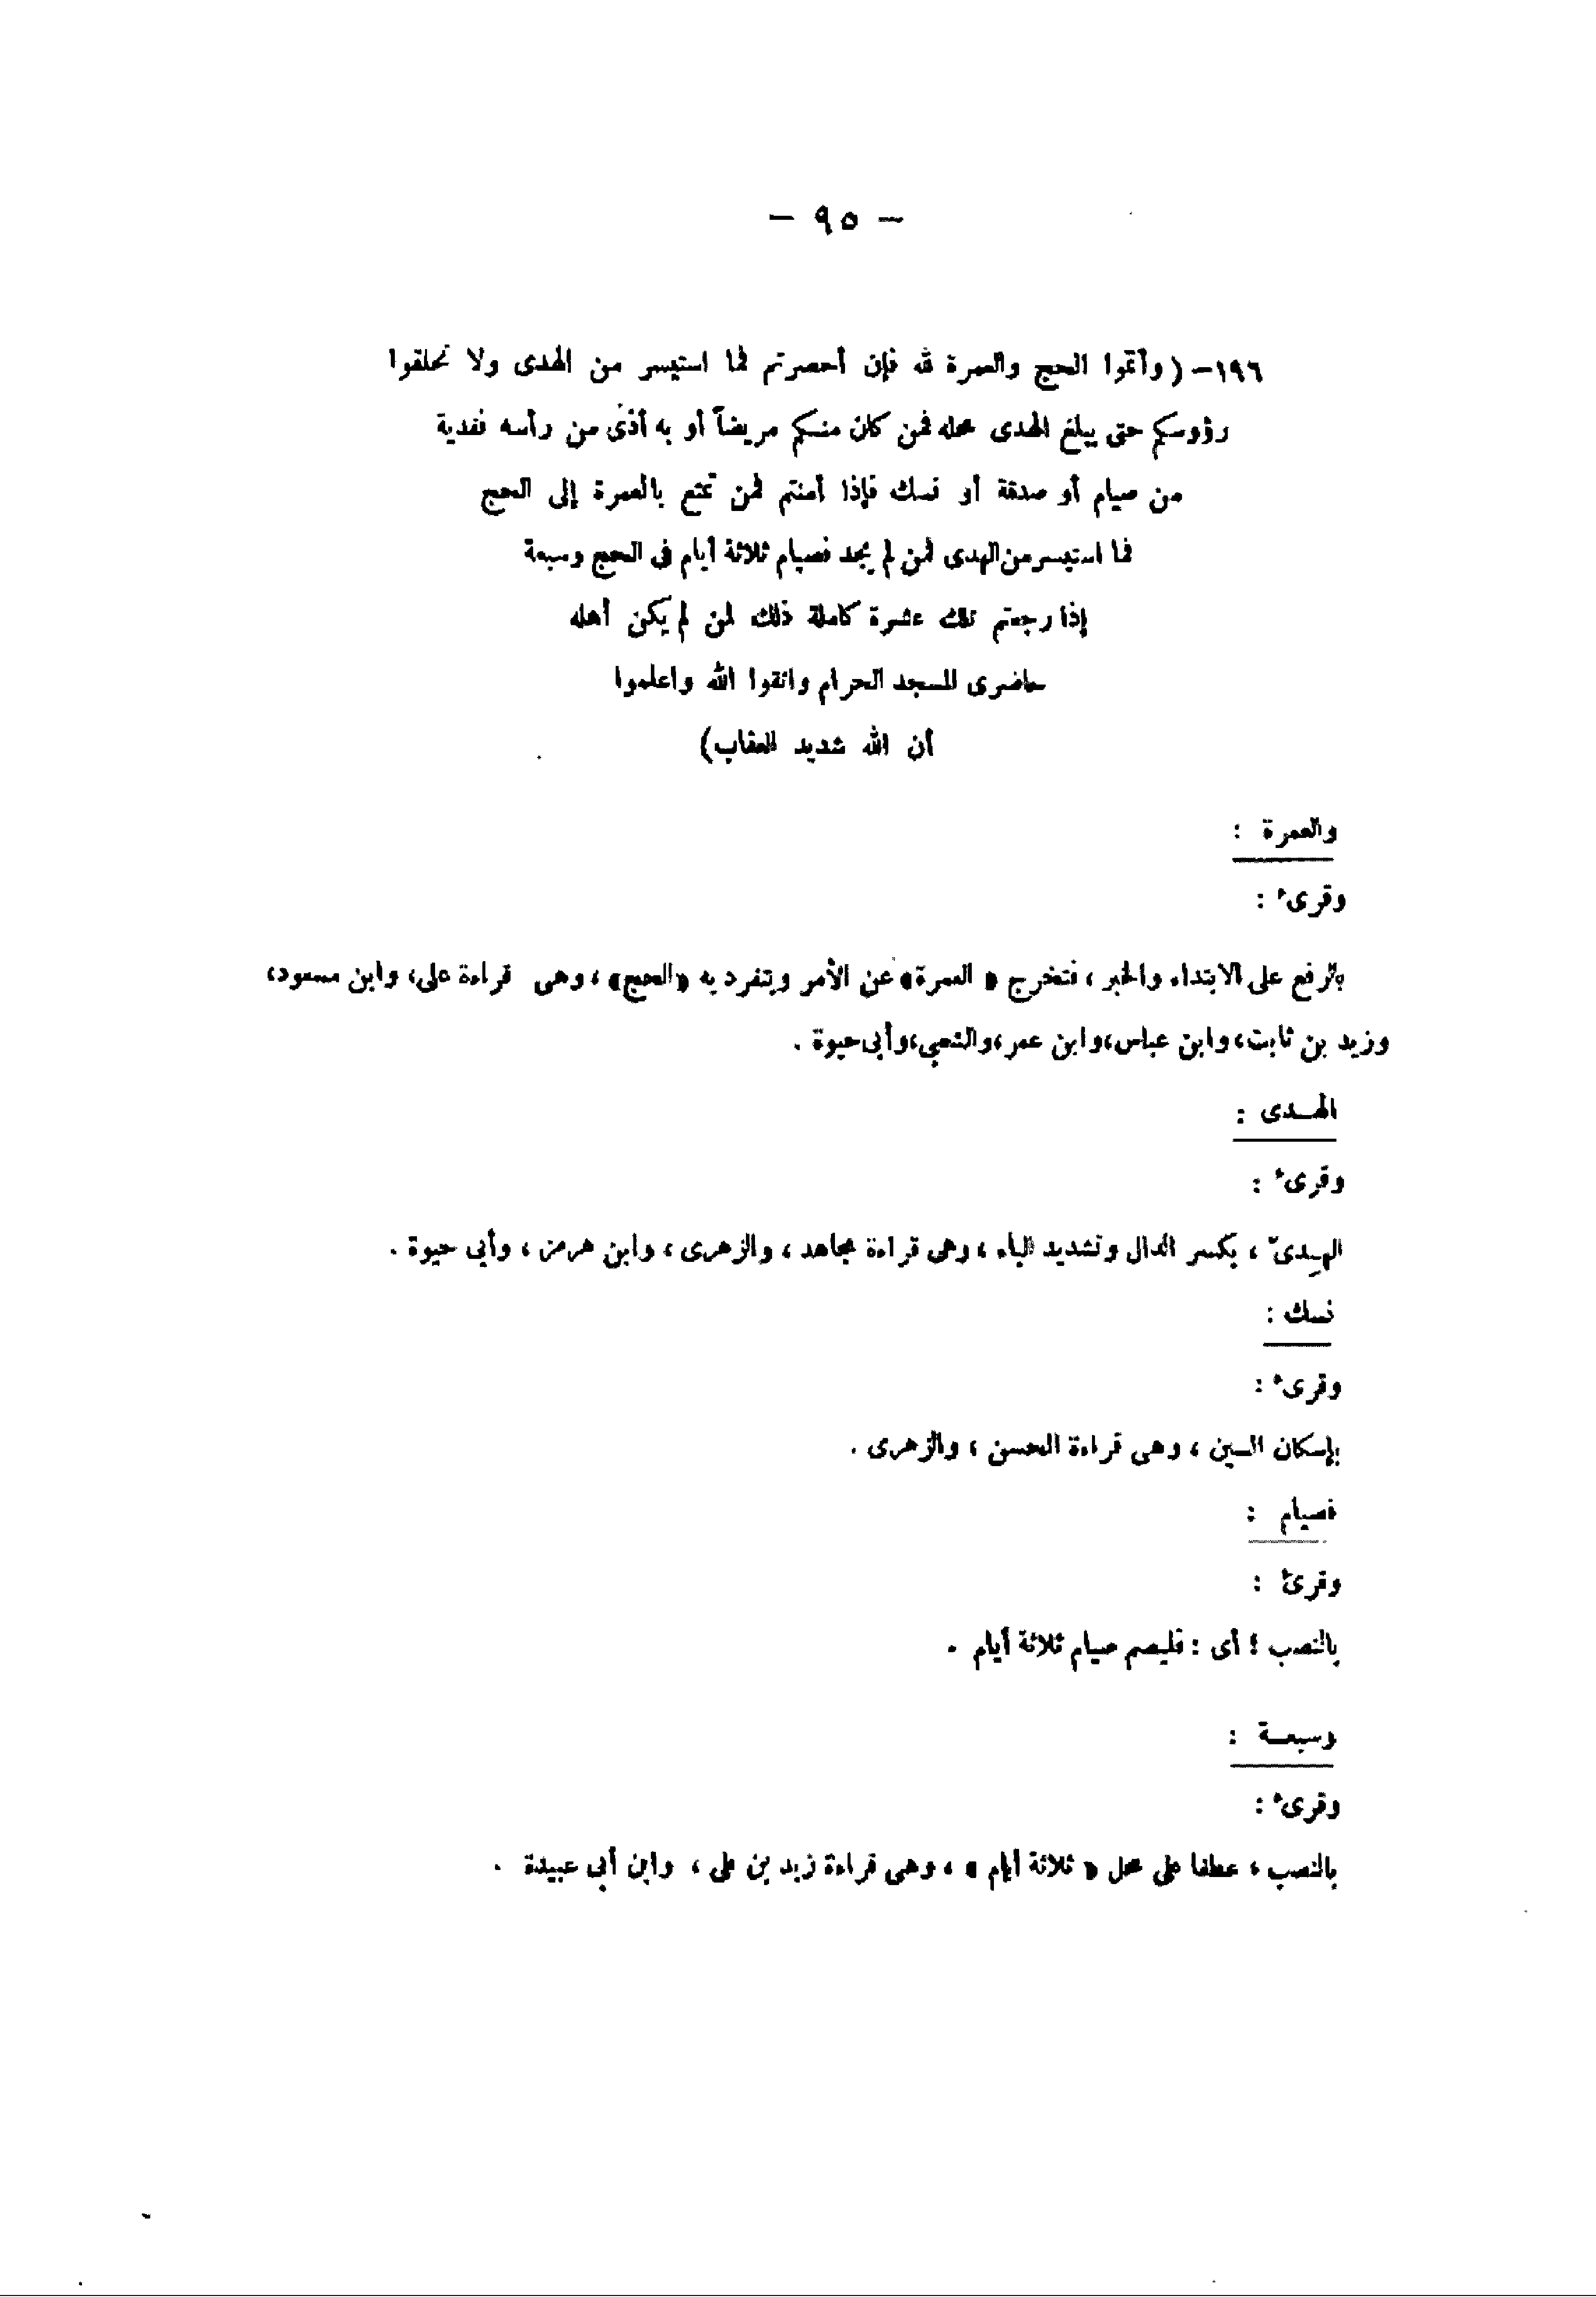 — ٩٥ —
١٩٦— ( وأتموا الحج والعمرة لله فإن أحصرتم فما استيسر من الهدى ولا تحلقوا
رؤوسكم حتى يبلغ الهدى محله فمن كان منكم مريضاً أو به أذى من رأسه ففدية
من صيام أو صدقة أو نسك فإذا أمنتم فمن تمتع بالعمرة إلى الحج
فما استيسر من الهدى فمن لم يجد فصيام ثلاثة أيام فى الحج وسبعة
إذا رجعتم تلك عشرة كاملة ذلك لمن لم يكن أهله
حاضرى المسجد الحرام واتقوا الله واعلموا
أن الله شديد العقاب)
والعمرة :
وقرىء :
بالرفع على الابتداء والخبر ، فتخرج « العمرة» عن الأمر وينفرد به «الحج» ، وهى قراءة على، وابن مسعود،
وزيد بن ثابت، وابن عباس، وابن عمر، والشعبي، وأبى حيوة .
الهـدى :
وقرىء :
الهدِىّ ، بكسر الدال وتشديد الياء ، وهى قراءة مجاهد ، والزهرى ، وابن هرمز ، وأبي حيوة .
نسك :
وقرىء :
بإسكان السين ، وهى قراءة الحسن ، والزهرى .
فصيام :
وقرئ :
بالنصب ؛ أى : فليصم صيام ثلاثة أيام .
وسبعـة :
وقرىء :
بالنصب ، عطفا على محل « ثلاثة أيام » ، وهى قراءة زيد بن على ، وابن أبى عبيدة .